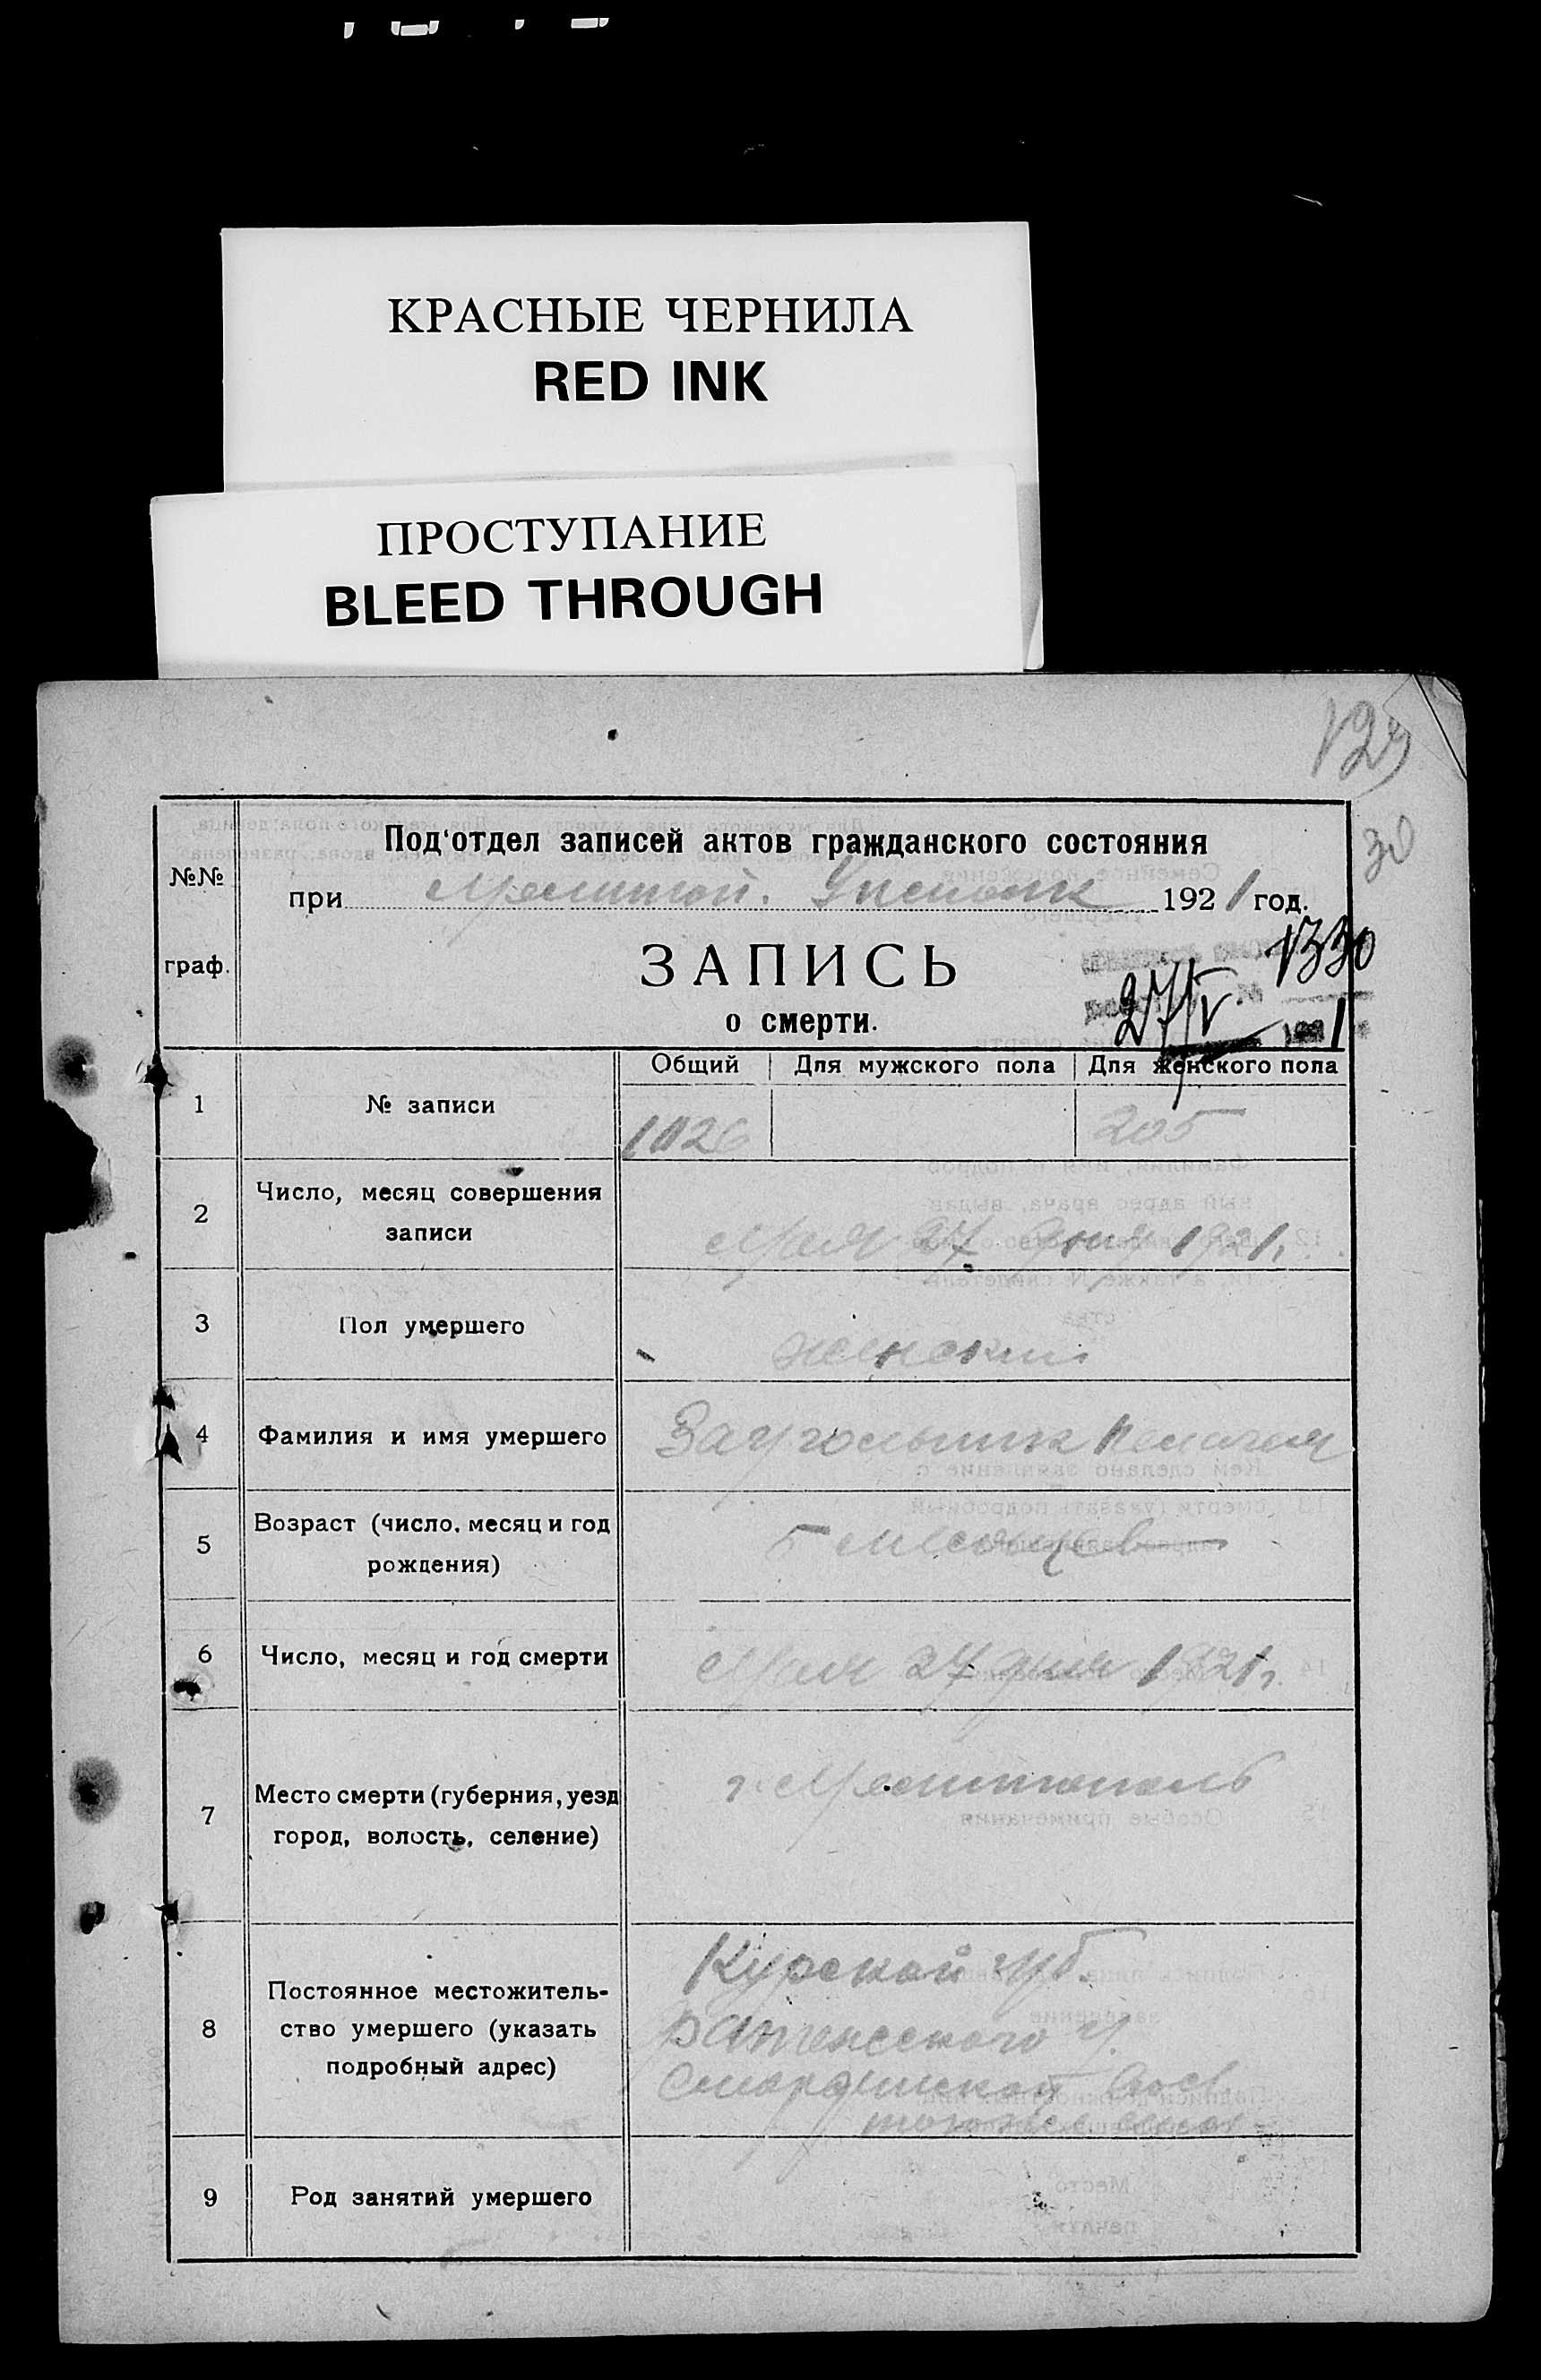 КРАСНЫЕ ЧЕРНИЛА
RED INK
ПРОСТУПАНИЕ
BLEED THROUGH
129
30
№№ граф.
Под'отдел записей актов гражданского состояния
при Мелитоп. 1921 год.
1330
ЗАПИСЬ
27/V 1921
о смерти.
Общий Для мужского пола Для женского пола
1 № записи 1026 205
2 Число, месяц совершения
записи
Мая 27 дня 1921 г.
3 Пол умершего женский
4 Фамилия и имя умершего
5 Возраст (число, месяц и год
рождения)
5 месяцев
6 Число, месяц и год смерти Мая 27 дня 1921 г.
7 Место смерти (губерния, уезд
город, волость, селение)
г. Мелитополь
8 Постоянное местожитель-
ство умершего (указать
подробный адрес)
Курской губ.
у.
вол.
того же села
9 Род занятий умершего